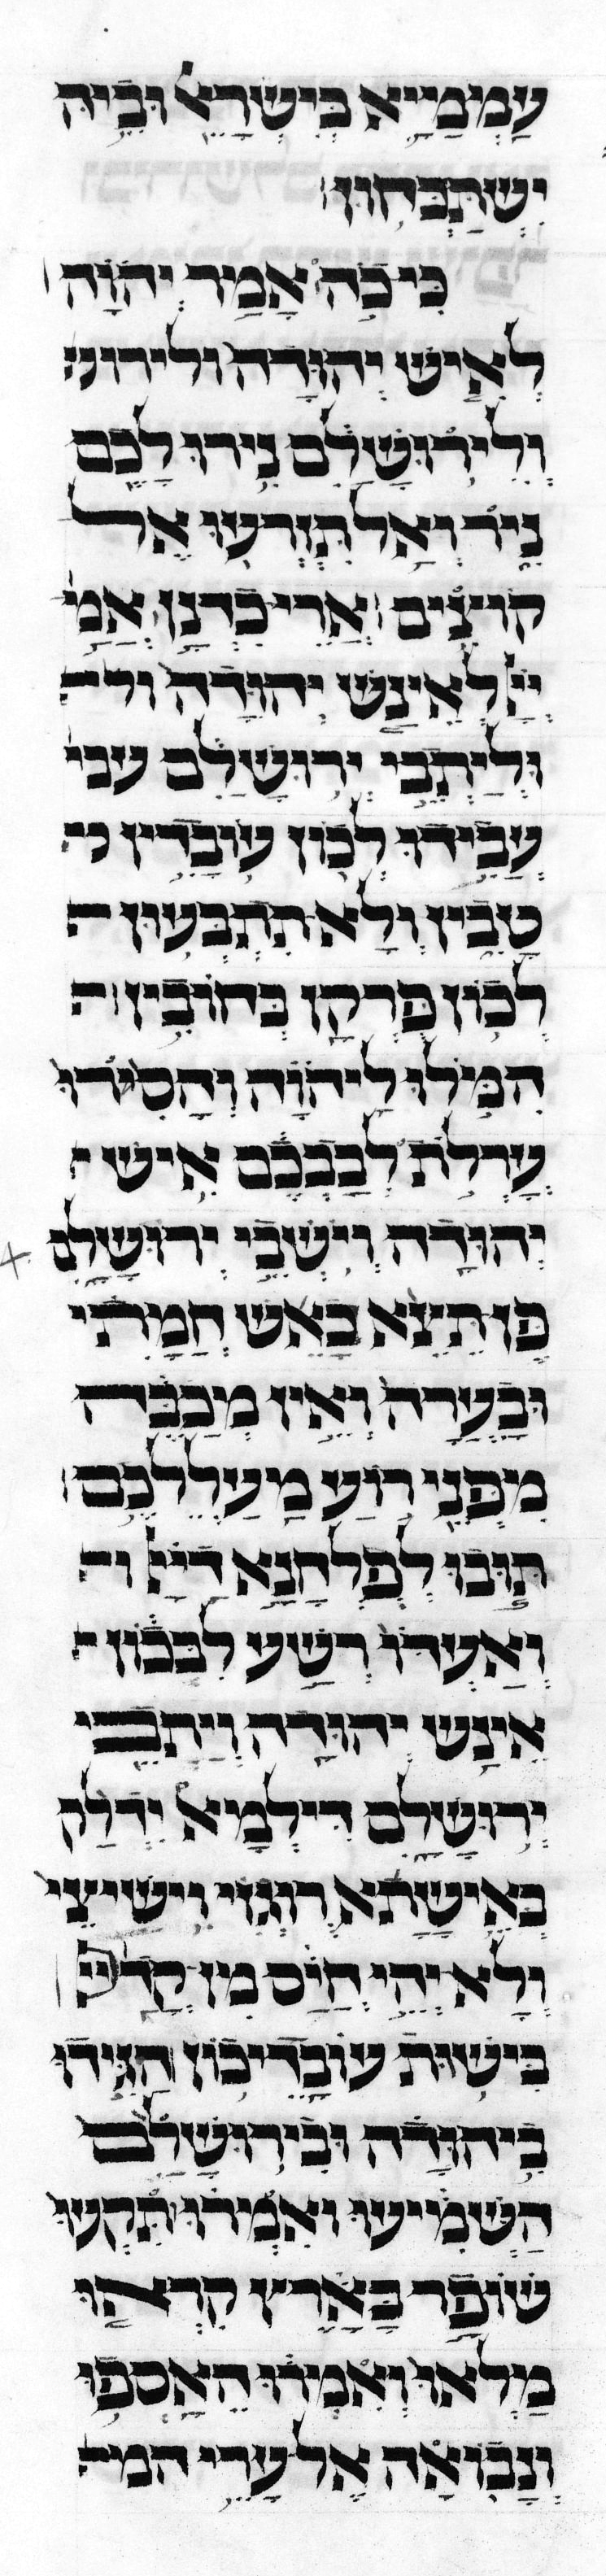 עַמְמַיָא בְּיִשְׂרָאֵל וּבֵיהּ
יִשְׁתַּבְּחוּן׃
כִּי כֹה אָמַר יְהוָה
לְאִישׁ יְהוּדָה ולירוש
וְלִירוּשָׁלִַם נִירוּ לָכֶם
נִיר וְאַל תִּזְרְעוּ אֶל
קוֹצִים׃ אֲרֵי כִדְנַן אֲמַ
יְיָ לֶאֱינָשׁ יְהוּדָה ול
וּלְיָתְבֵי יְרוּשָׁלִַם עבי
עֲבִידוּ לְכוֹן עוּבָדִין
טָבִין וְלָא תִתְבְּעוּן
לְכוֹן פֻּרְקָן בְּחוֹבִין׃
הִמֹּלוּ לַיהוָה וְהָסִרוּ
עָרְלֹת לְבַבְכֶם אִישׁ
יְהוּדָה וְיֹשְׁבֵי יְרוּשָׁלִָם
פֶּן תֵּצֵא כָאֵשׁ חֲמָתִי
וּבָעֲרָה וְאֵין מְכַבֶּה
מִפְּנֵי רֹועַ מַעַלְלֵכֶם׃
תּוּבוּ לְפָלְחָנָא דַייָ
וְאַעְדוֹ רְשַׁע לִבְּכוֹן
אֱינָשׁ יְהוּדָה וְיָתְבֵי
יְרוּשָׁלִָם דִּילְמָא יִדְלַק
כְּאִישָׁתָא רוּגְזִי וִישֵׁיצֵי
וְלָא יְהֵי חֲיֵס מִן קֳדָ
בִּישׁוּת עוֹבָדֵיכוֹן׃ הַגִּידוּ
בִיהוּדָה וּבִירוּשָׁלִַם
הַשְׁמִיעוּ וְאִמְרוּ תִּקְעוּ
שׁוֹפָר בָּאָרֶץ קִרְאוּ
מַלְאוּ וְאִמְרוּ הֵאָסְפוּ
וְנָבוֹאָה אֶל עָרֵי המ